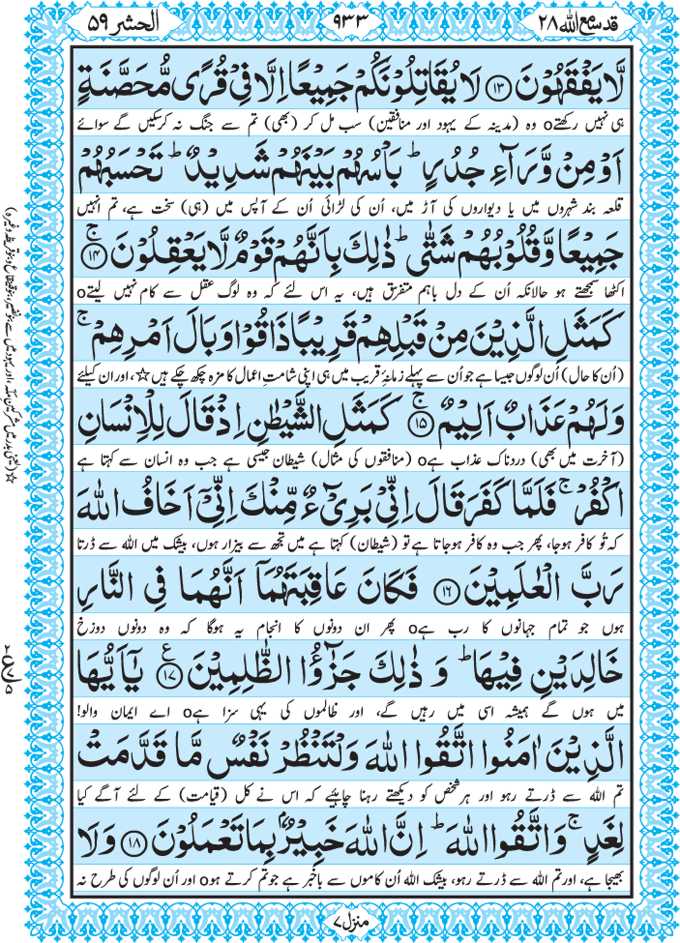 قد سمع اللہ ۲۸
۹۳۳
الحشر ۵۹
لَّا یَفْقَهُوْنَ ۝۱۳ لَا یُقَاتِلُوْنَكُمْ جَمِیْعًا اِلَّا فِیْ قُرًى مُّحَصَّنَةٍ
ہی نہیں رکھتےo وہ (مدینہ کے یہود اور منافقین) سب مل کر (بھی) تم سے جنگ نہ کرسکیں گے سوائے
اَوْ مِنْ وَّرَآءِ جُدُرٍ ؕ بَاْسُهُمْ بَیْنَهُمْ شَدِیْدٌ ؕ تَحْسَبُهُمْ
قلعہ بند شہروں میں یا دیواروں کی آڑ میں، اُن کی لڑائی اُن کے آپس میں (ہی) سخت ہے، تم انہیں
جَمِیْعًا وَّ قُلُوْبُهُمْ شَتّٰی ؕ ذٰلِكَ بِاَنَّهُمْ قَوْمٌ لَّا یَعْقِلُوْنَ ۝۱۴ ۚ
اکٹھا سمجھتے ہو حالانکہ اُن کے دل باہم متفرّق ہیں، یہ اس لئے کہ وہ لوگ عقل سے کام نہیں لیتےo
كَمَثَلِ الَّذِیْنَ مِنْ قَبْلِهِمْ قَرِیْبًا ذَاقُوْا وَبَالَ اَمْرِهِمْ ۚ
(اُن کا حال) اُن لوگوں جیسا ہے جو اُن سے پہلے زمانۂ قریب میں ہی اپنی شامتِ اعمال کا مزہ چکھ چکے ہیں☆، اور ان کیلئے
وَ لَهُمْ عَذَابٌ اَلِیْمٌ ۝۱۵ ۚ كَمَثَلِ الشَّیْطٰنِ اِذْ قَالَ لِلْاِنْسَانِ
(آخرت میں بھی) دردناک عذاب ہےo (منافقوں کی مثال) شیطان جیسی ہے جب وہ انسان سے کہتا ہے
اكْفُرْ ۚ فَلَمَّا كَفَرَ قَالَ اِنِّیْ بَرِیْٓءٌ مِّنْكَ اِنِّیْۤ اَخَافُ اللّٰهَ
کہ تُو کافر ہوجا، پھر جب وہ کافر ہوجاتا ہے تو (شیطان) کہتا ہے میں تجھ سے بیزار ہوں، بیشک میں اللہ سے ڈرتا
رَبَّ الْعٰلَمِیْنَ ۝۱۶ فَكَانَ عَاقِبَتَهُمَاۤ اَنَّهُمَا فِی النَّارِ
ہوں جو تمام جہانوں کا رب ہےo پھر ان دونوں کا انجام یہ ہوگا کہ وہ دونوں دوزخ
خَالِدَیْنِ فِیْهَا ؕ وَ ذٰلِكَ جَزٰٓؤُا الظّٰلِمِیْنَ ۝۱۷ ع یٰۤاَیُّهَا
میں ہوں گے ہمیشہ اسی میں رہیں گے، اور ظالموں کی یہی سزا ہےo اے ایمان والو!
الَّذِیْنَ اٰمَنُوا اتَّقُوا اللّٰهَ وَ لْتَنْظُرْ نَفْسٌ مَّا قَدَّمَتْ
تم اللہ سے ڈرتے رہو اور ہر شخص کو دیکھتے رہنا چاہئیے کہ اس نے کل (قیامت) کے لئے آگے کیا
لِغَدٍ ۚ وَ اتَّقُوا اللّٰهَ ؕ اِنَّ اللّٰهَ خَبِیْرٌۢ بِمَا تَعْمَلُوْنَ ۝۱۸ وَ لَا
بھیجا ہے، اور تم اللہ سے ڈرتے رہو، بیشک اللہ اُن کاموں سے باخبر ہے جو تم کرتے ہوo اور اُن لوگوں کی طرح نہ
منزل ۷